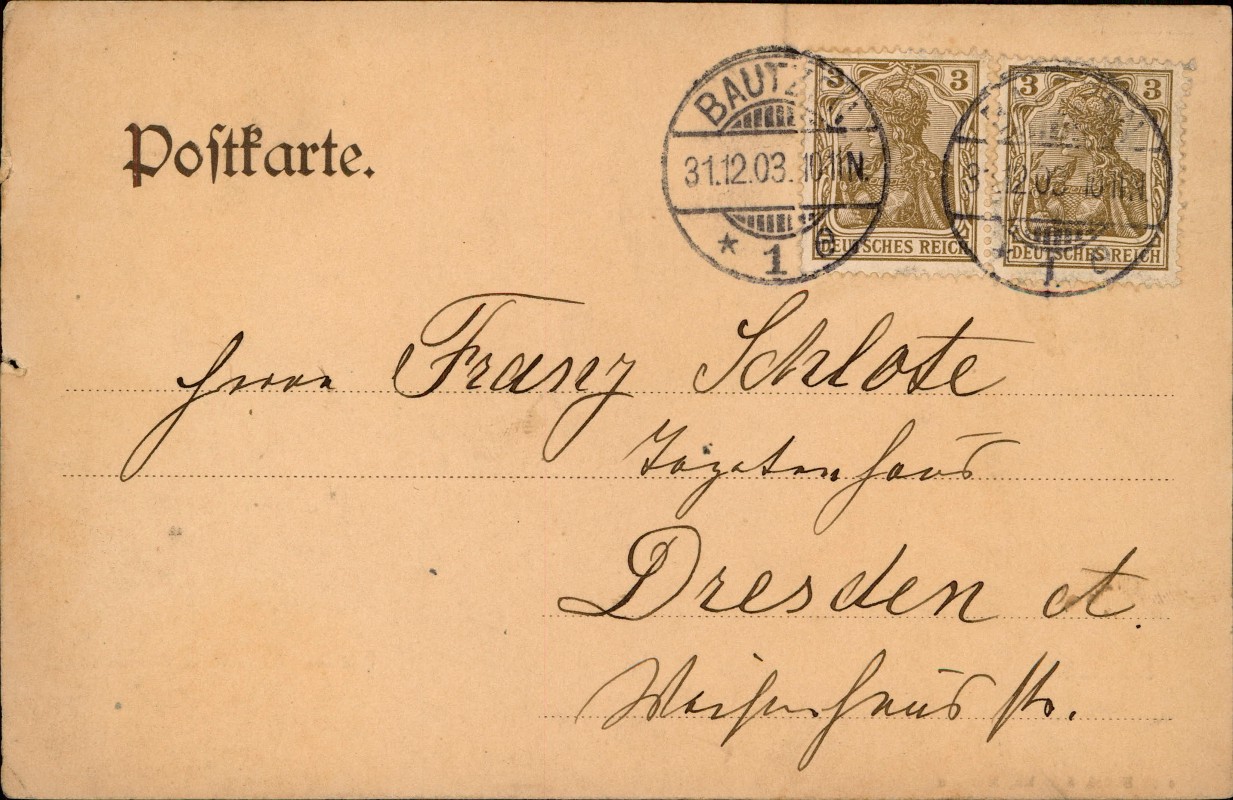 Postkarte.
BAUTZEN
31.12.03. 10-11N.
* 1 c
3 3
DEUTSCHES REICH
3 3
DEUTSCHES REICH
31.12.03. 10-11N.
* 1 c
Herrn Franz Schlote
Dresden A.
Waisenhaus str.